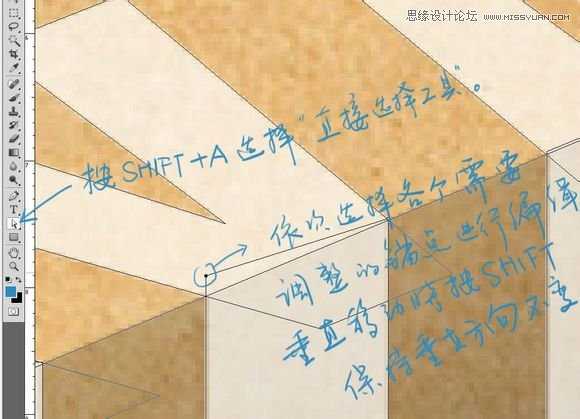 思缘设计论坛 WWW.MISSYUAN.COM
按SHIFT+A选择"直接选择工具"。
依次选择各个需要
调整的锚点进行编辑
垂直移动时按SHIFT
保持垂直方向不变